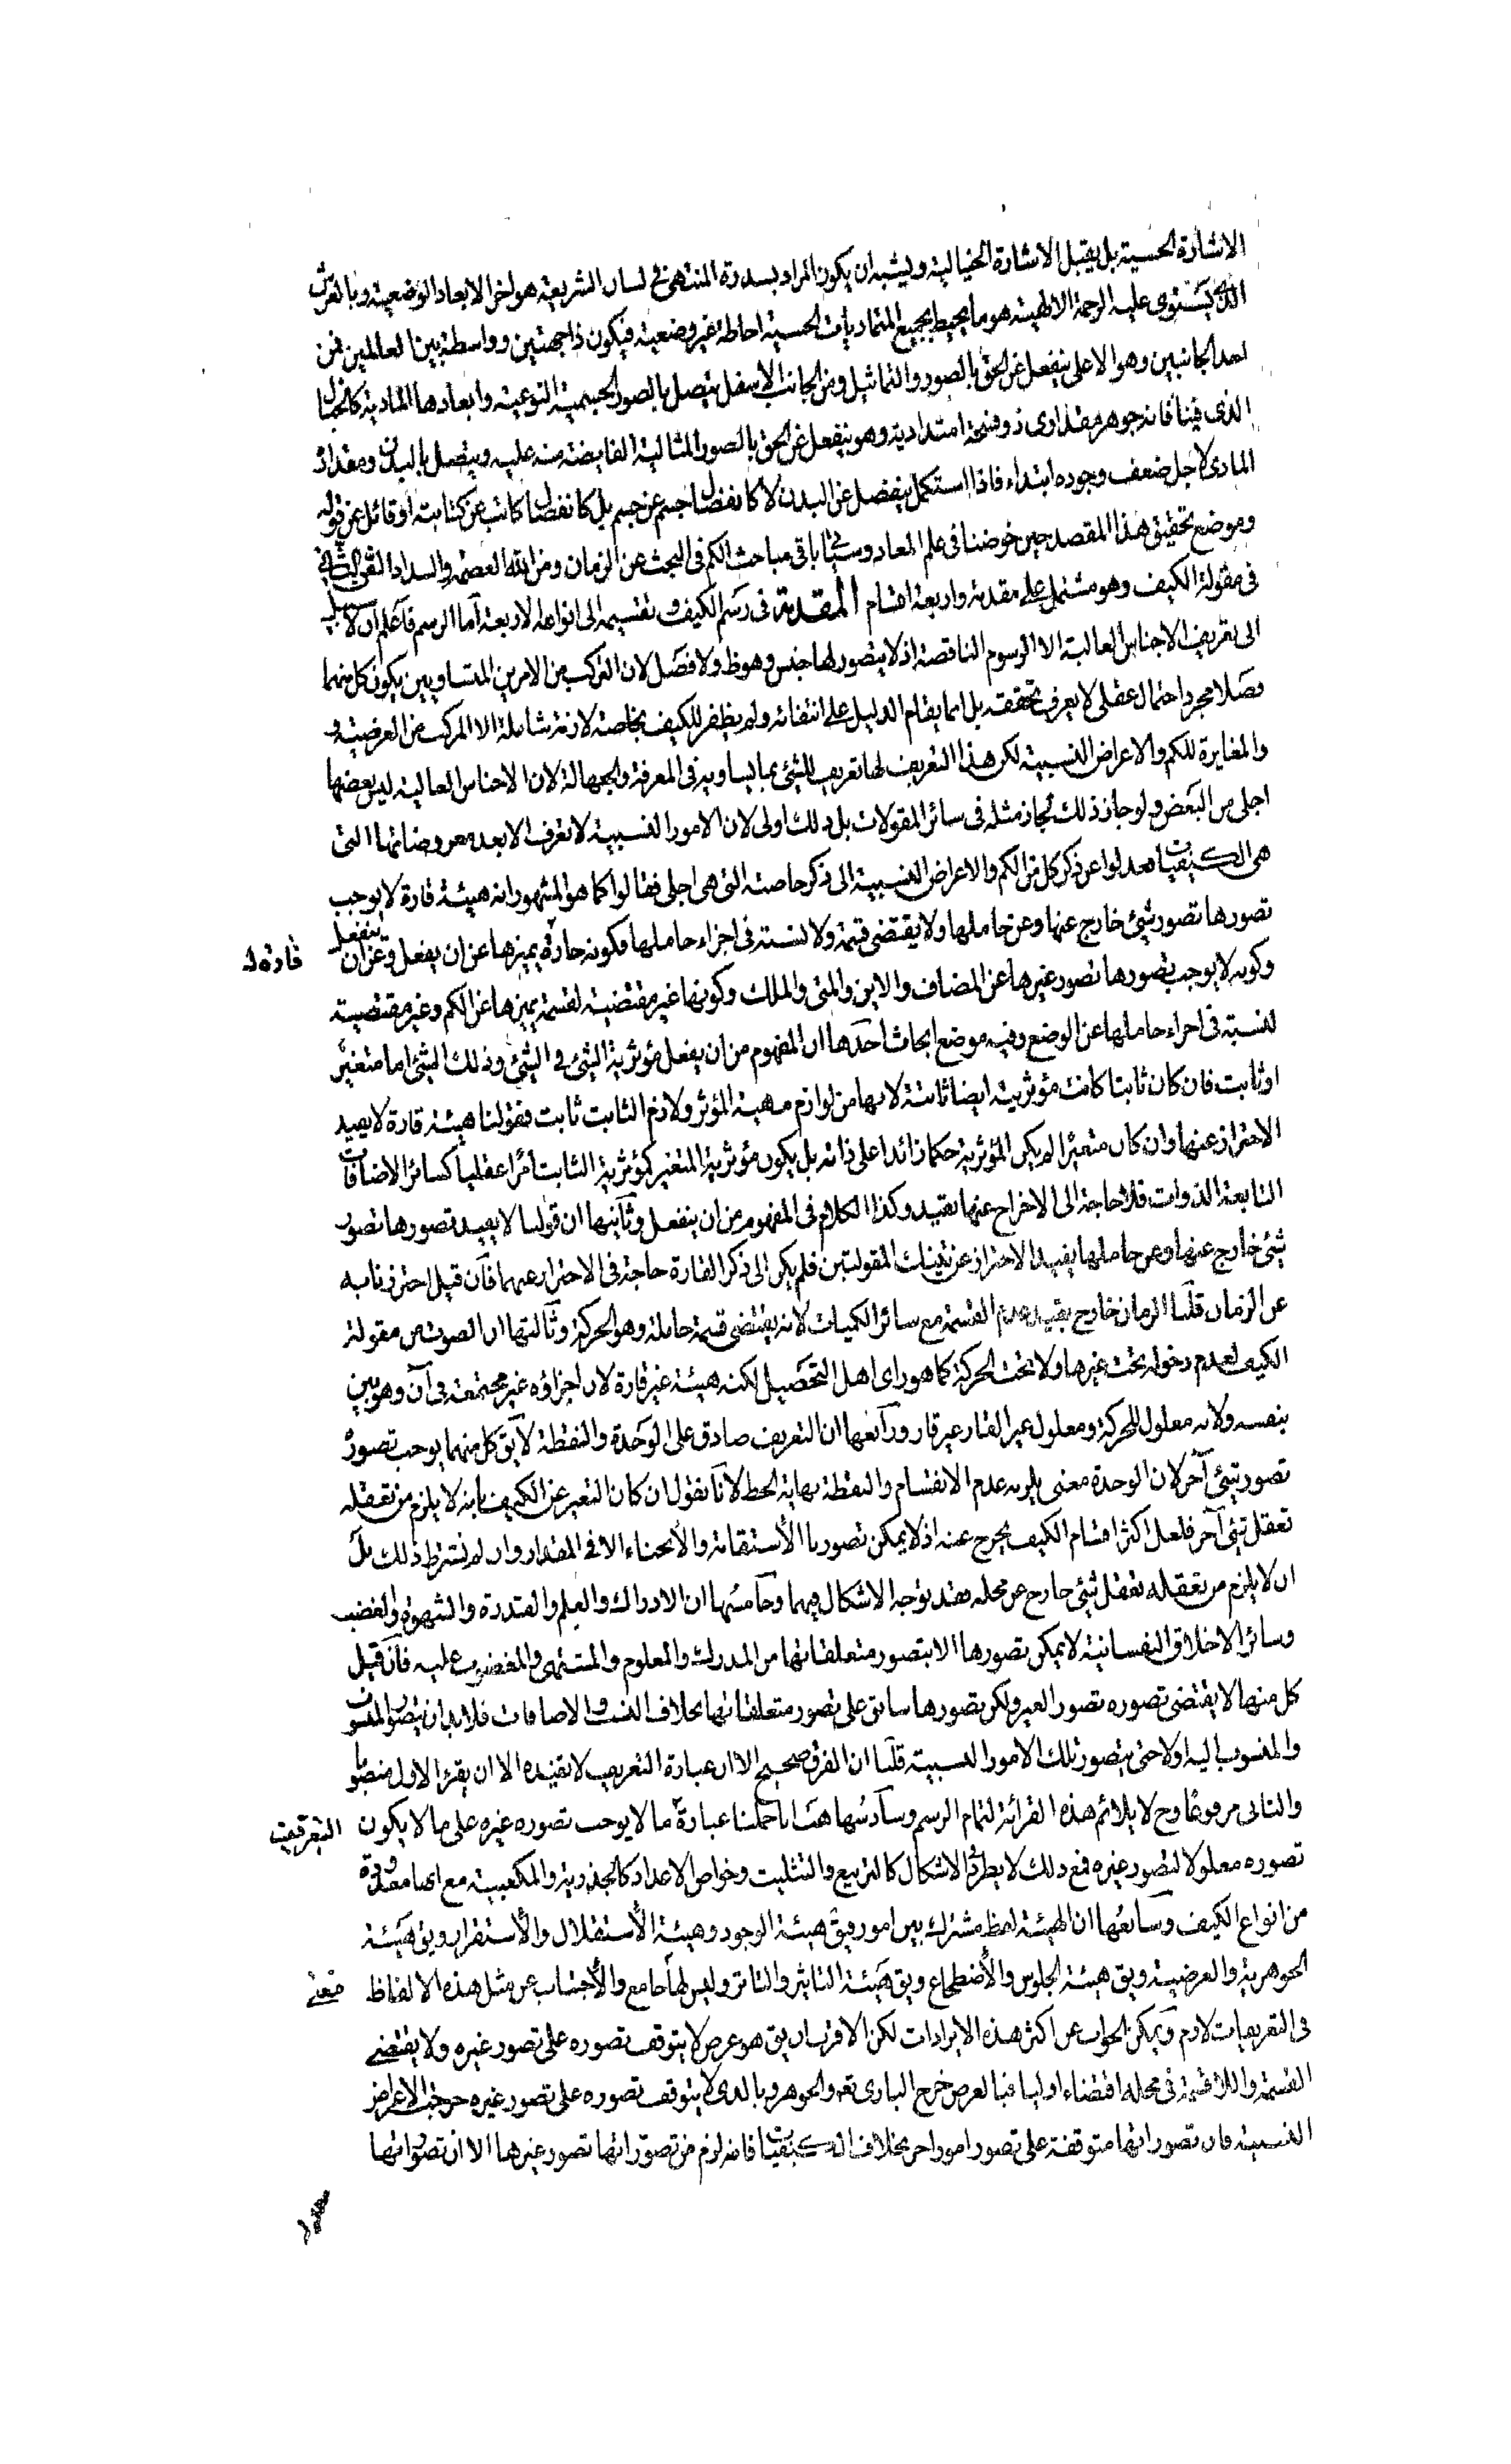 الاشارة الحسية بل يقبل الاشارة الخيالية ويشبه ان يكون المراد بسدرة المنتهى في لسان الشريعة هو اخر الابعاد الوضعية وبالعرش
الذي يستوى عليه الرحمة الالهية هو ما يحيط بجميع المتماديات الحسية احاطة غير وضعية فيكون ذا جهتين وواسطة بين العالمين فمن
احد الجانبين وهو الاعلى ينفعل عن الحق بالصور والتماثيل ومن الجانب الاسفل يتصل بالصور الجسمية النوعية وابعادها المادية كالخيال
الذى فينا فانه جوهر مقدارى ذو فسحة امتدادية وهو ينفعل عن الحق بالصور المثالية الفايضة منه عليه ويتصل بالبدن ومقداره
المادى لاجل ضعف وجوده ابتداء فاذا استكمل ينفصل عن البدن لا كانفصال جسم عن جسم بل كانفصال كاتب عن كتابته او قائل عن قوله
وموضع تحقيق هذا المقصد حين خوضنا فى علم المعاد وسياتى باقى مباحث الكم فى البحث عن الزمان ومن الله العصمة والسداد الفن الثانى
فى مقولة الكيف وهو مشتمل على مقدمة واربعة اقسام المقدمة فى رسم الكيف وتقسيمه الى انواعه الاربعة اما الرسم فاعلم ان لا سبيل
الى تعريف الاجناس العالية الا الرسوم الناقصة اذ لا يتصور لها جنس وهو ظ ولا فصل لان التركب من الامرين المتساويين يكون كل منهما
فصلا مجرد احتمال عقلى لا يعرف تحققه بل انما يقام الدليل على انتفائه ولم يظفر للكيف بخاصة لازمة شاملة الا المركب من العرضية و
المغايرة للكم والاعراض النسبية لكن هذا التعريف لها تعريف للشئ بما يساويه فى المعرفة والجهالة لان الاجناس العالية ليس بعضها
اجلى من البعض ولو جاز ذلك لجاز مثله فى سائر المقولات بل ذلك اولى لان الامور النسبية لا تعرف الا بعد معروضاتها التى
هى الكيفيات فعدلوا عن ذكر كل من الكم والاعراض النسبية الى ذكر خاصته التى هى اجلى فقالوا كما هو المشهور انه هيئة قارة لا يوجب
تصورها تصور شئ خارج عنها وعن حاملها ولا يقتضى قسمة ولا نسبة فى اجزاء حاملها فكونه قارة يميزها عن ان يفعل وعن ان ينفعل
قارة ل
وكونه لا يوجب تصورها تصور غيرها عن المضاف والاين والمتى والملك وكونها غير مقتضية لقسمة يميزها عن الكم وغير مقتضية
لنسبة فى اجزاء حاملها عن الوضع وفيه موضع ابحاث احدها ان المفهوم من ان يفعل مؤثرية الشئ فى الشئ وذلك الشئ اما متغير
او ثابت فان كان ثابتا كانت مؤثريته ايضا ثابتة لانها من لوازم مهية المؤثر ولازم الثابت ثابت فقولنا هيئة قارة لا يفيد
الاحتراز عنها وان كان متغيرا لم يكن المؤثرية حكما زائدا على ذاته بل يكون مؤثرية المتغير كمؤثرية الثابت امرا عقليا كسائر الاضافات
التابعة الذوات فلا حاجة الى الاخراج عنها بقيد وكذا الكلام فى المفهوم من ان ينفعل وثانيها ان قولنا لا يفيد تصورها تصور
شئ خارج عنها وعن حاملها يفيد الاحتراز عن تينك المقولتين فلم يكن الى ذكر القارة حاجة فى الاحتراز عنهما فان قيل احترزنا به
عن الزمان قلنا الزمان خارج بقيد عدم القسمة مع سائر الكميات لانه يقتضى قسمة حامله وهو الحركة وثالثها ان الصوت من مقولة
الكيف لعدم دخوله تحت غيرها ولا تحت الحركة كما هو راى اهل التحصيل لكنه هيئة غير قارة لان اجزاؤه غير مجتمعة فى آن وهو بين
بنفسه ولانه معلول للحركة ومعلول غير القار غير قار ورابعها ان التعريف صادق على الوحدة والنقطة لا يق كل منهما يوجب تصوره
تصور شئ آخر لان الوحدة معنى يلزمه عدم الانقسام والنقطة نهاية الخط لانا نقول ان كان التعبير عن الكيف بانه لا يلزم من تعقله
تعقل شئ آخر فلعل اكثر اقسام الكيف يخرج عنه اذ لا يمكن تصورنا الاستقامة والانحناء الا فى المقدار وان لم نشترط ذلك بل
ان لا يلزم من تعقله تعقل شئ خارج عن محله فقد توجه الاشكال فيهما وخامسها ان الادراك والعلم والقدرة والشهوة والغضب
وسائر الاخلاق النفسانية لا يمكن تصورها الا بتصور متعلقاتها من المدرك والمعلوم والمشتهى والمغضوب عليه فان قيل
كل منها لا يقتضى تصوره تصور الغير ولكن تصورها سابق على تصور متعلقاتها بخلاف النسب والاضافات فلا بد ان يتصور المنسوب
والمنسوب اليه اولا حتى يتصور تلك الامور النسبية قلنا ان الفرق صحيح الا ان عبارة التعريف لا تفيده الا ان يقرء الاول منصوبا
والثانى مرفوعا وح لا يلائم هذه القرائة لتمام الرسم وسادسها هب انا حملنا عبارة ما لا يوجب تصوره غيره على ما لا يكون
التعريف
تصوره معلولا لتصور غيره فمع ذلك لا يطرد الاشكال كالتربيع والتثليث وخواص الاعداد كالجذرية والمكعبية مع انها معدودة
من انواع الكيف وسابعها ان الهيئة لفظ مشترك بين امور فيق هيئة الوجود وهيئة الاستقلال والاستقرار ويق هيئة
الجوهرية والعرضية ويق هيئة الجلوس والاضطجاع ويق هيئة التاثير والتاثر وليس لها جامع والاجتناب عن مثل هذه الالفاظ
معنى
فى التعريفات لازم ويمكن الجواب عن اكثر هذه الايرادات لكن الاقرب ان يق هو عرض لا يتوقف تصوره على تصور غيره ولا يقتضى
القسمة واللاقسمة فى محله اقتضاء اوليا فبالعرض خرج البارى تعه والجوهر وبالذى لا يتوقف تصوره على تصور غيره خرجت الاعراض
النسبية فان تصوراتها متوقفة على تصور امور اخر بخلاف الكيفيات فانه لزم من تصوراتها تصور غيرها الا ان تصوراتها